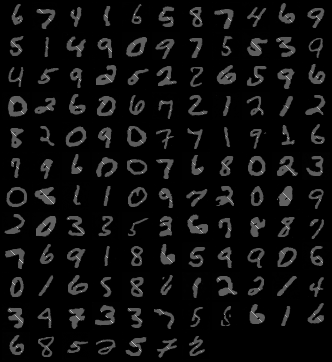 6 7 4 1 6 5 8 7 4 6 9
5 1 4 9 0 9 7 5 5 3 9
4 5 9 2 5 2 2 6 5 9 6
0 2 6 0 6 7 2 1 2 1 2
8 2 0 9 0 7 7 1 9 1 6
7 9 6 0 0 7 6 8 0 2 3
0 8 1 1 0 9 7 2 0 9
2 0 3 3 5 3 6 7 8 8 7
7 6 9 1 8 6 5 9 9 0 6
0 1 6 5 8 6 1 2 2 1 4
3 9 7 3 3 7 5 5 6 1 6
6 8 5 2 5 7 2